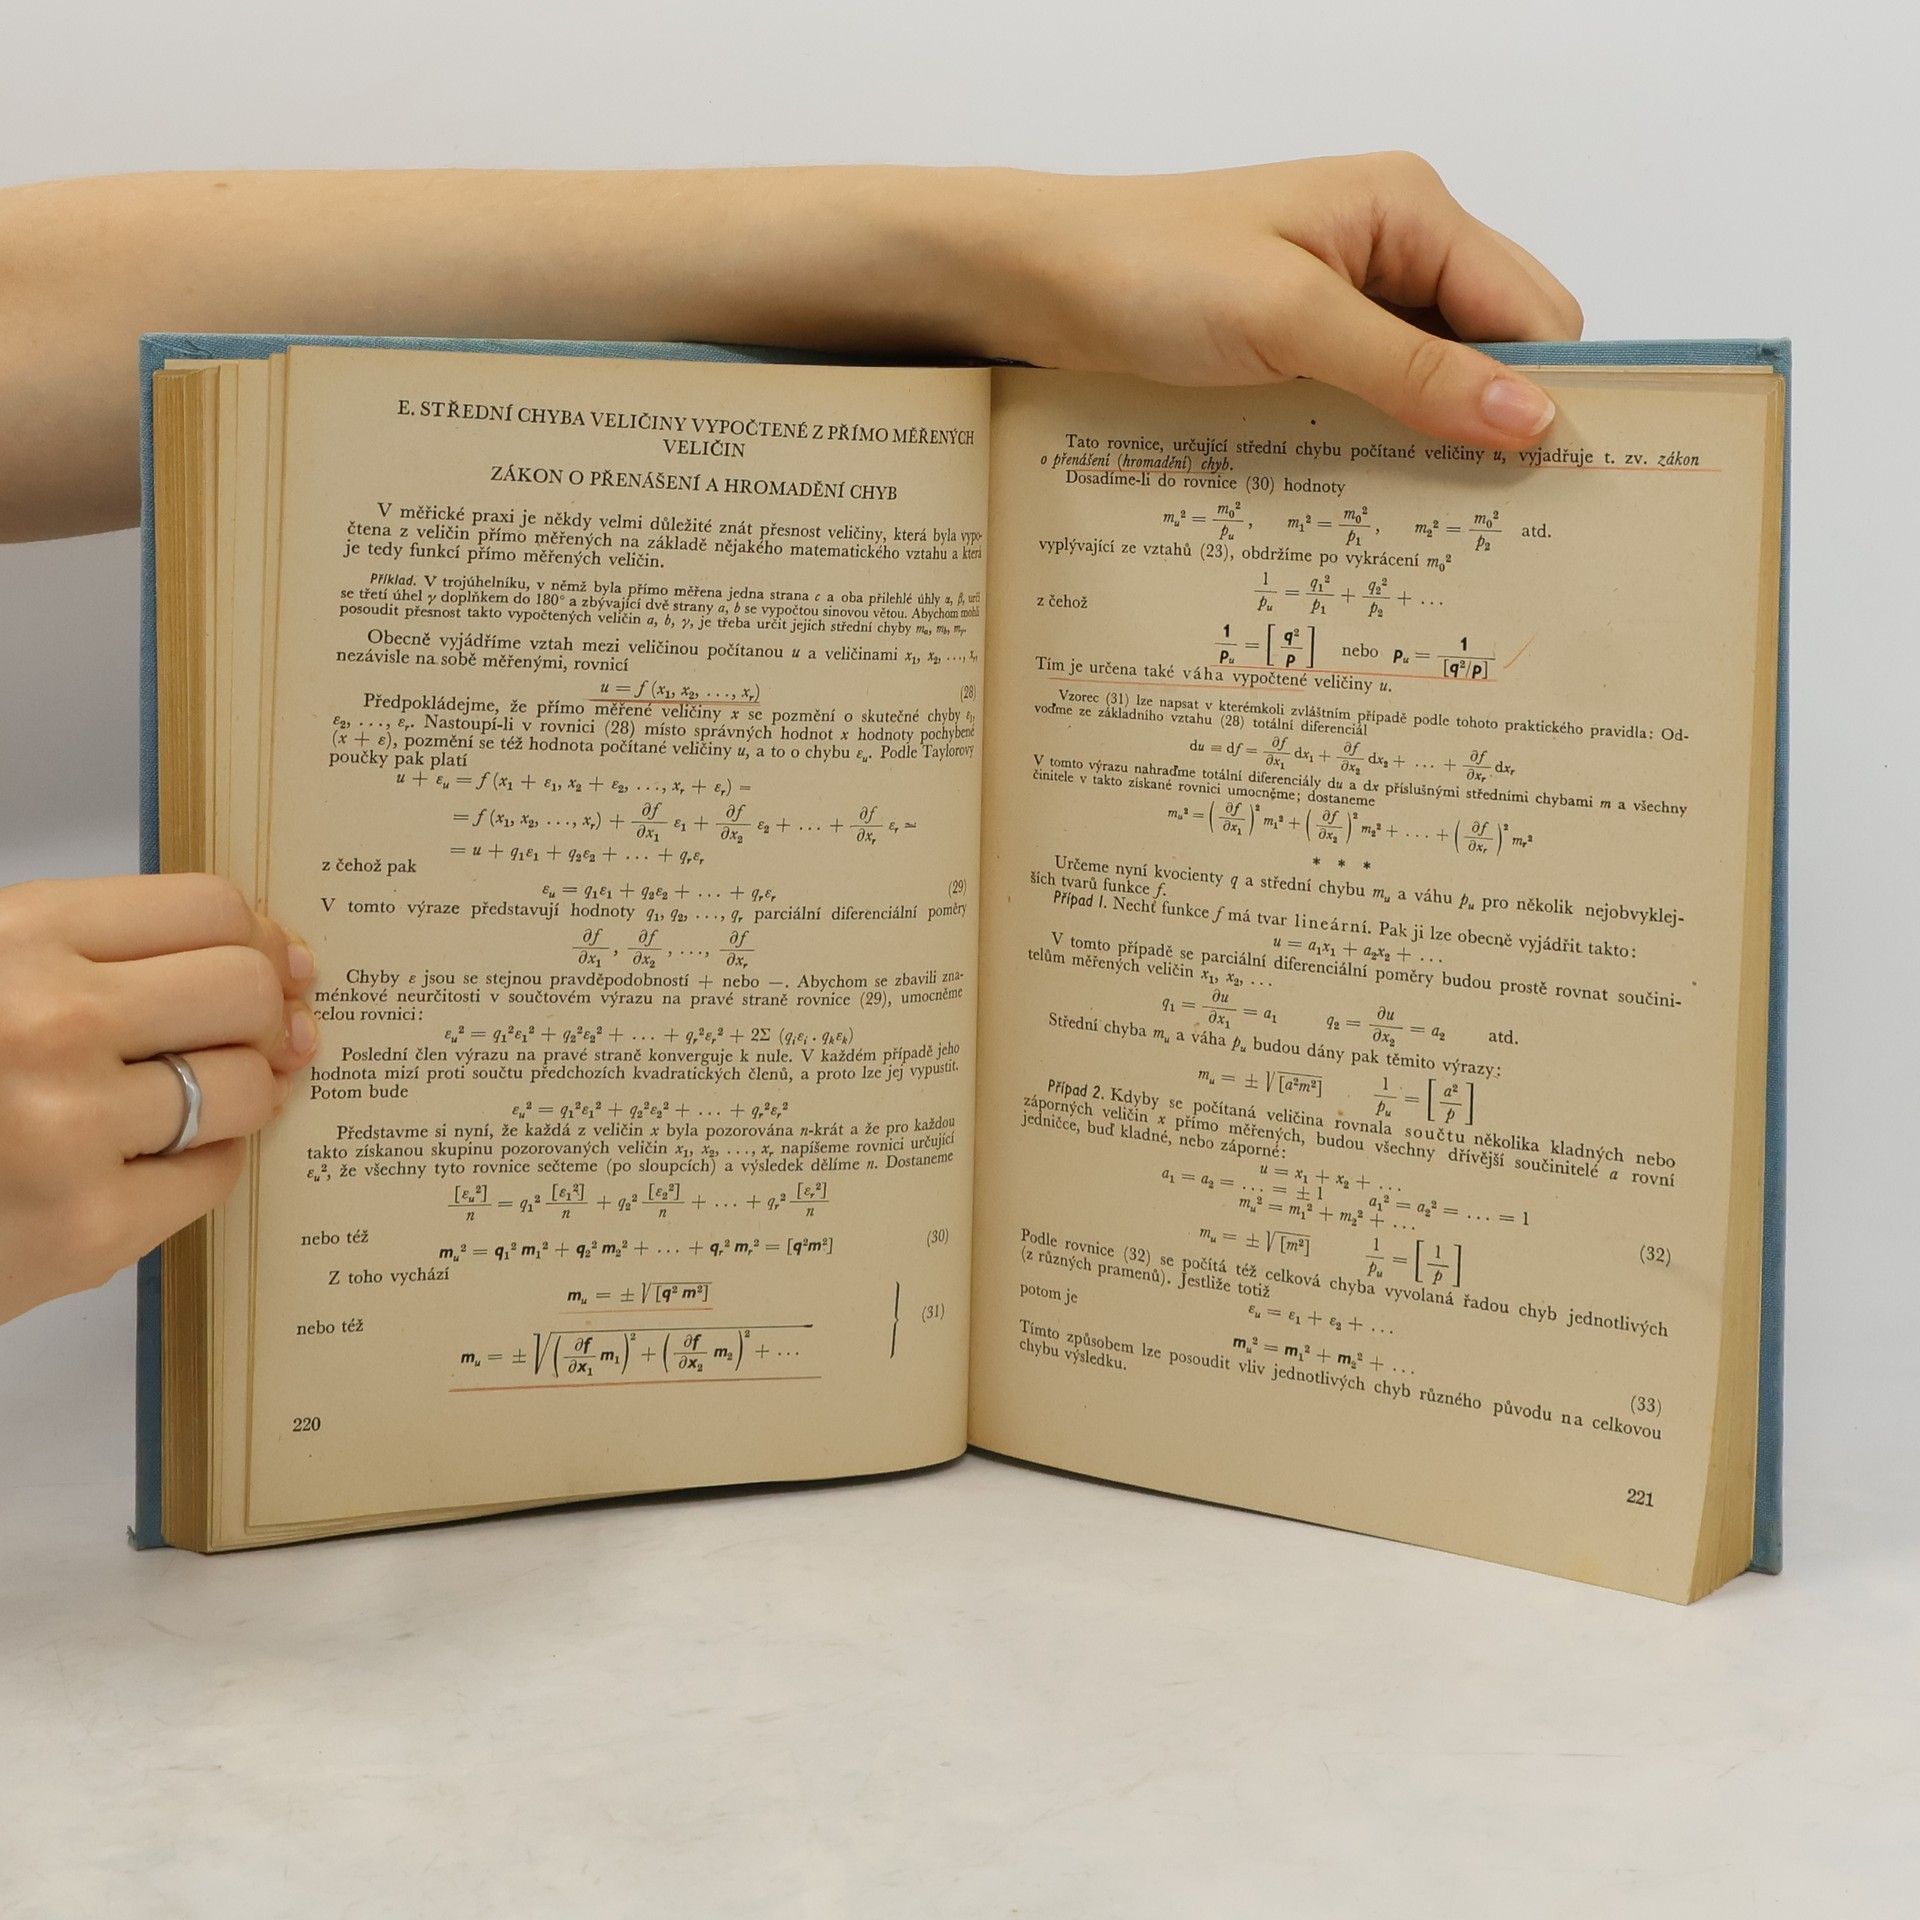 E. STŘEDNÍ CHYBA VELIČINY VYPOČTENÉ Z PŘÍMO MĚŘENÝCH
VELIČIN
ZÁKON O PŘENÁŠENÍ A HROMADĚNÍ CHYB
V měřické praxi je někdy velmi důležité znát přesnost veličiny, která byla vypo-
čtena z veličin přímo měřených na základě nějakého matematického vztahu a která
je tedy funkcí přímo měřených veličin.
Příklad. V trojúhelníku, v němž byla přímo měřena jedna strana c a oba přilehlé úhly α, β, určí
se třetí úhel γ doplňkem do 180° a zbývající dvě strany a, b se vypočtou sinovou větou. Abychom mohli
posoudit přesnost takto vypočtených veličin a, b, γ, je třeba určit jejich střední chyby mₐ, m_b, m_γ.
Obecně vyjádříme vztah mezi veličinou počítanou u a veličinami x₁, x₂, ..., xᵣ,
nezávisle na sobě měřenými, rovnicí
u = f (x₁, x₂, ..., xᵣ) (28)
Předpokládejme, že přímo měřené veličiny x se pozmění o skutečné chyby ε₁,
ε₂, ..., εᵣ. Nastoupí-li v rovnici (28) místo správných hodnot x hodnoty pochybené
(x + ε), pozmění se též hodnota počítané veličiny u, a to o chybu εᵤ. Podle Taylorovy
poučky pak platí
u + εᵤ = f (x₁ + ε₁, x₂ + ε₂, ..., xᵣ + εᵣ) =
= f (x₁, x₂, ..., xᵣ) + ∂f/∂x₁ ε₁ + ∂f/∂x₂ ε₂ + ... + ∂f/∂xᵣ εᵣ =
= u + q₁ε₁ + q₂ε₂ + ... + qᵣεᵣ
z čehož pak
εᵤ = q₁ε₁ + q₂ε₂ + ... + qᵣεᵣ (29)
V tomto výraze představují hodnoty q₁, q₂, ..., qᵣ parciální diferenciální poměry
∂f/∂x₁, ∂f/∂x₂, ..., ∂f/∂xᵣ
Chyby ε jsou se stejnou pravděpodobností + nebo —. Abychom se zbavili zna-
ménkové neurčitosti v součtovém výrazu na pravé straně rovnice (29), umocněme
celou rovnici:
εᵤ² = q₁²ε₁² + q₂²ε₂² + ... + qᵣ²εᵣ² + 2Σ (qᵢεᵢ . qₖεₖ)
Poslední člen výrazu na pravé straně konverguje k nule. V každém případě jeho
hodnota mizí proti součtu předchozích kvadratických členů, a proto lze jej vypustit.
Potom bude
εᵤ² = q₁²ε₁² + q₂²ε₂² + ... + qᵣ²εᵣ²
Představme si nyní, že každá z veličin x byla pozorována n-krát a že pro každou
takto získanou skupinu pozorovaných veličin x₁, x₂, ..., xᵣ napíšeme rovnici určující
εᵤ², že všechny tyto rovnice sečteme (po sloupcích) a výsledek dělíme n. Dostaneme
[εᵤ²]/n = q₁² [ε₁²]/n + q₂² [ε₂²]/n + ... + qᵣ² [εᵣ²]/n
nebo též
mᵤ² = q₁² m₁² + q₂² m₂² + ... + qᵣ² mᵣ² = [q²m²] (30)
Z toho vychází
mᵤ = ± √[q² m²]
nebo též (31)
mᵤ = ± √(∂f/∂x₁ m₁)² + (∂f/∂x₂ m₂)² + ...
220
Tato rovnice, určující střední chybu počítané veličiny u, vyjadřuje t. zv. zákon
o přenášení (hromadění) chyb.
Dosadíme-li do rovnice (30) hodnoty
mᵤ² = m₀²/pᵤ, m₁² = m₀²/p₁, m₂² = m₀²/p₂ atd.
vyplývající ze vztahů (23), obdržíme po vykrácení m₀²
1/pᵤ = q₁²/p₁ + q₂²/p₂ + ...
z čehož
1/pᵤ = [q²/p] nebo pᵤ = 1/[q²/p]
Tím je určena také váha vypočtené veličiny u.
Vzorec (31) lze napsat v kterémkoli zvláštním případě podle tohoto praktického pravidla: Od-
voďme ze základního vztahu (28) totální diferenciál
du ≡ df = ∂f/∂x₁ dx₁ + ∂f/∂x₂ dx₂ + ... + ∂f/∂xᵣ dxᵣ
V tomto výrazu nahraďme totální diferenciály du a dx příslušnými středními chybami m a všechny
činitele v takto získané rovnici umocněme; dostaneme
mᵤ² = (∂f/∂x₁)² m₁² + (∂f/∂x₂)² m₂² + .... + (∂f/∂xᵣ)² mᵣ²
* * *
Určeme nyní kvocienty q a střední chybu mᵤ a váhu pᵤ pro několik nejobvyklej-
ších tvarů funkce f.
Případ 1. Nechť funkce f má tvar lineární. Pak ji lze obecně vyjádřit takto:
u = a₁x₁ + a₂x₂ + ...
V tomto případě se parciální diferenciální poměry budou prostě rovnat součini-
telům měřených veličin x₁, x₂, ...
q₁ = ∂u/∂x₁ = a₁ q₂ = ∂u/∂x₂ = a₂ atd.
Střední chyba mᵤ a váha pᵤ budou dány pak těmito výrazy:
mᵤ = ± √[a²m²] 1/pᵤ = [a²/p]
Případ 2. Kdyby se počítaná veličina rovnala součtu několika kladných nebo
záporných veličin x přímo měřených, budou všechny dřívější součinitelé a rovní
jedničce, buď kladné, nebo záporné:
u = x₁ + x₂ + ...
a₁ = a₂ = ... = ± 1 a₁² = a₂² = ... = 1
mᵤ² = m₁² + m₂² + ...
mᵤ = ± √[m²] 1/pᵤ = [1/p] (32)
Podle rovnice (32) se počítá též celková chyba vyvolaná řadou chyb jednotlivých
(z různých pramenů). Jestliže totiž
εᵤ = ε₁ + ε₂ + ...
potom je
mᵤ² = m₁² + m₂² + ... (33)
Tímto způsobem lze posoudit vliv jednotlivých chyb různého původu na celkovou
chybu výsledku.
221